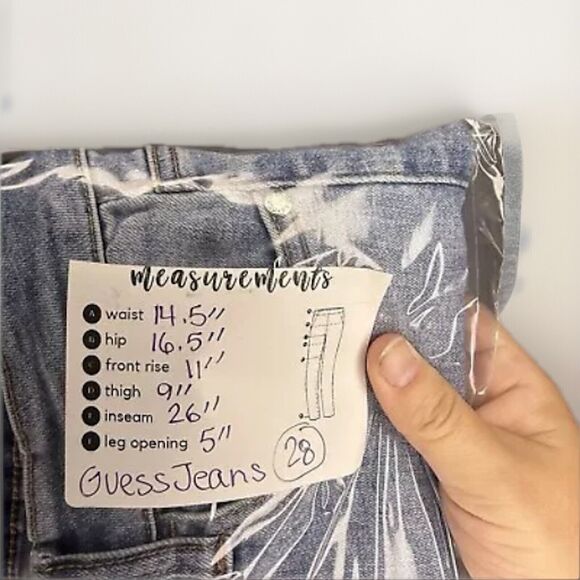 measurements
A waist 14.5"
B hip 16.5"
C front rise 11"
D thigh 9"
E inseam 26"
F leg opening 5"
Guess Jeans 28